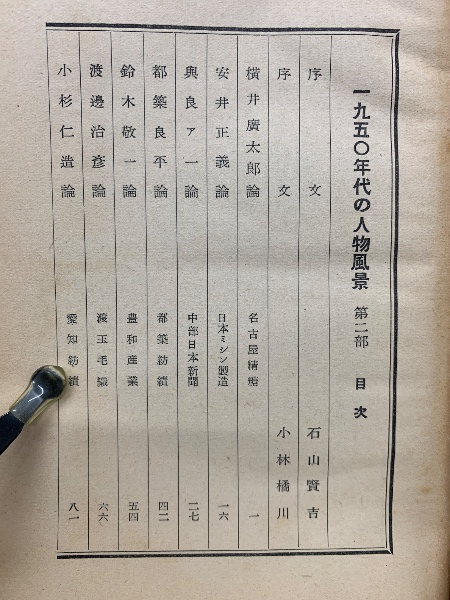 一九五〇年代の人物風景 第二部 目次
序文 石山賢吉
序文 小林橘川
横井廣太郎論 名古屋精糖 一
安井正義論 日本ミシン製造 一六
與良ア一論 中部日本新聞 二七
都築良平論 都築紡績 四二
鈴木敬一論 豊和産業 五四
渡邊治彦論 渡玉毛織 六六
小杉仁造論 愛知紡績 八一